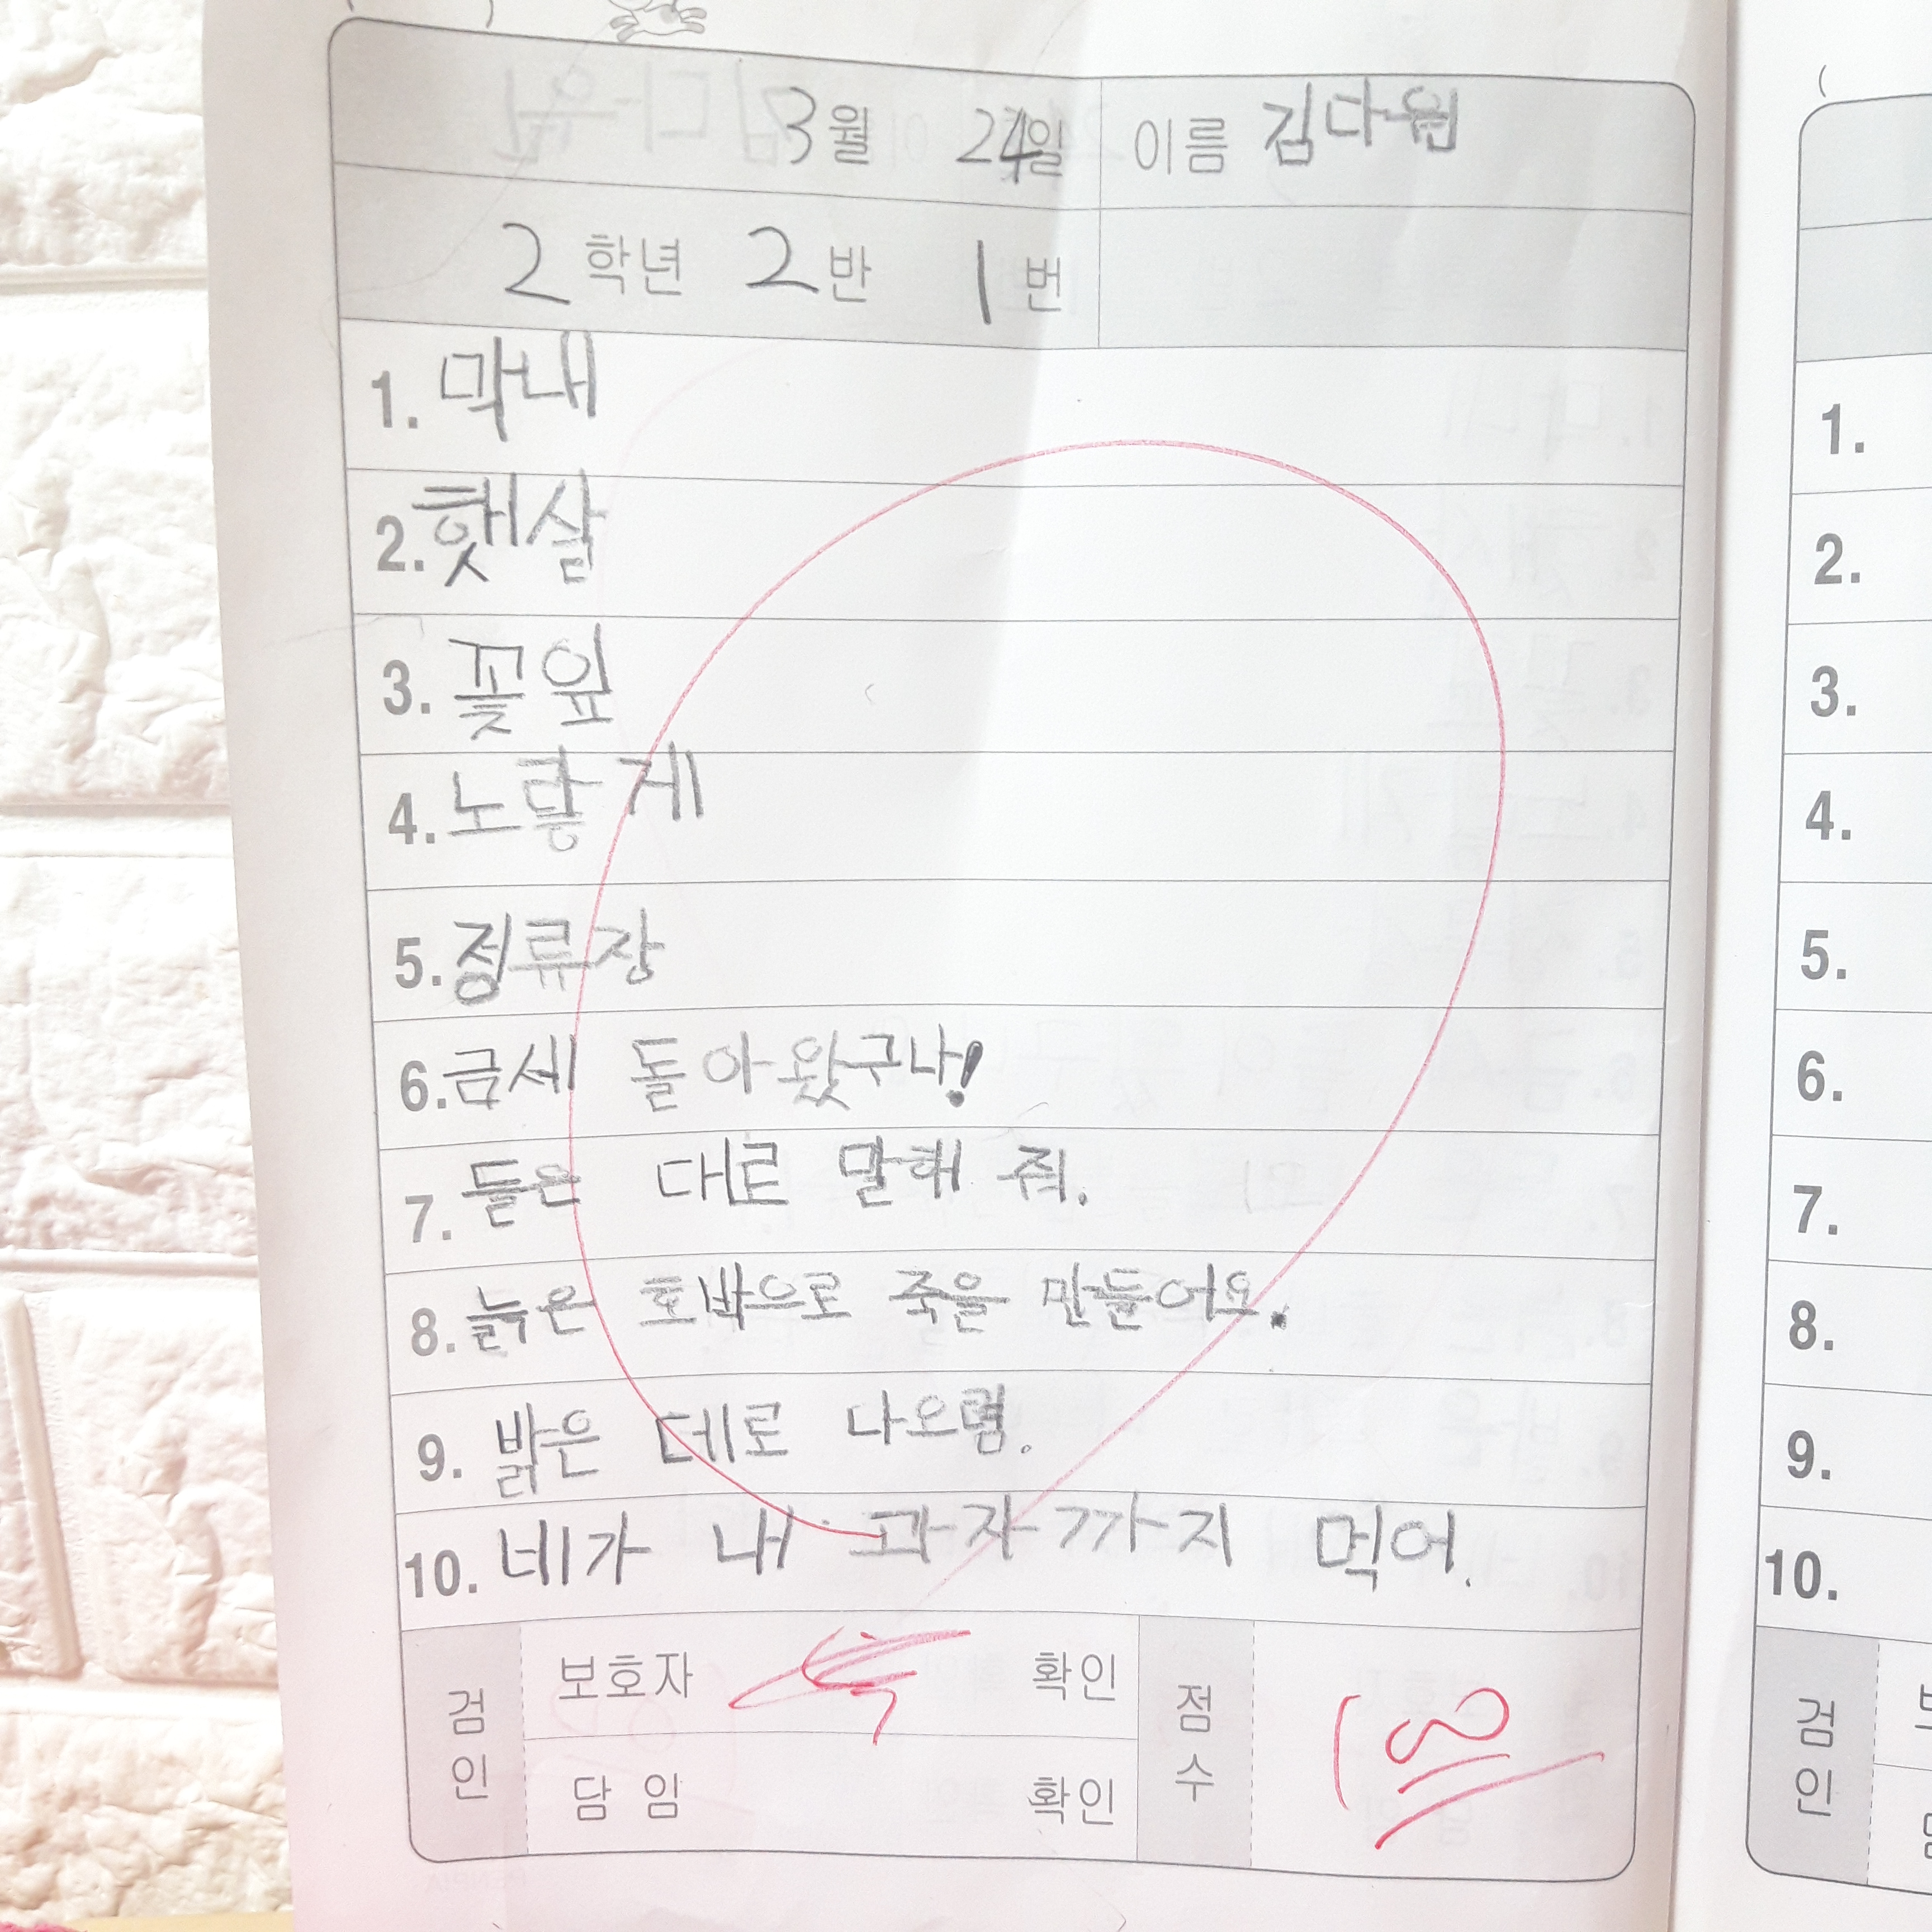 3월 24일 이름 김다원
2학년 2반 1번
1. 막내
2. 햇살
3. 꽃잎
4. 노랗게
5. 정류장
6. 금세 돌아왔구나!
7. 들은 대로 말해 줘.
8. 늙은 호박으로 죽을 만들어요.
9. 밝은 데로 나오렴.
10. 네가 내 과자까지 먹어.
검인 보호자 확인 점수 100
담임 확인
1.
2.
3.
4.
5.
6.
7.
8.
9.
10.
검인